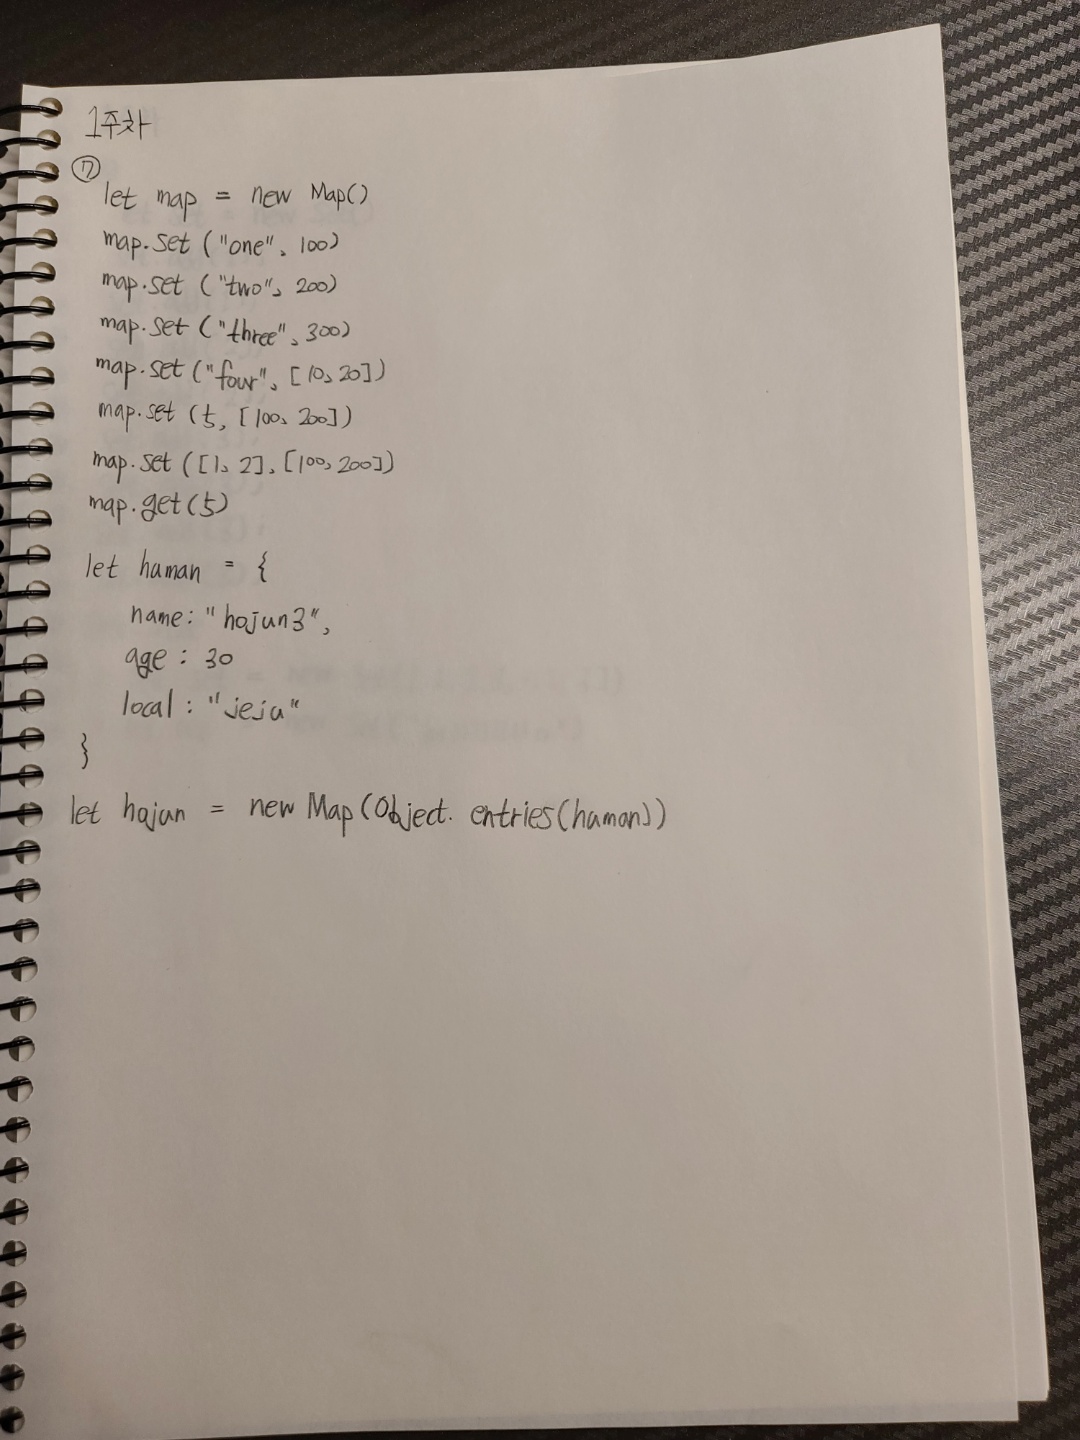 1주차
⑦
let map = new Map()
map.set ("one", 100)
map.set ("two", 200)
map.set ("three", 300)
map.set ("four", [10, 20])
map.set (5, [100, 200])
map.set ([1, 2], [100, 200])
map.get(5)
let haman = {
name: "hojun3",
age : 30
local : "jeju"
}
let hojun = new Map(Object. entries(haman))